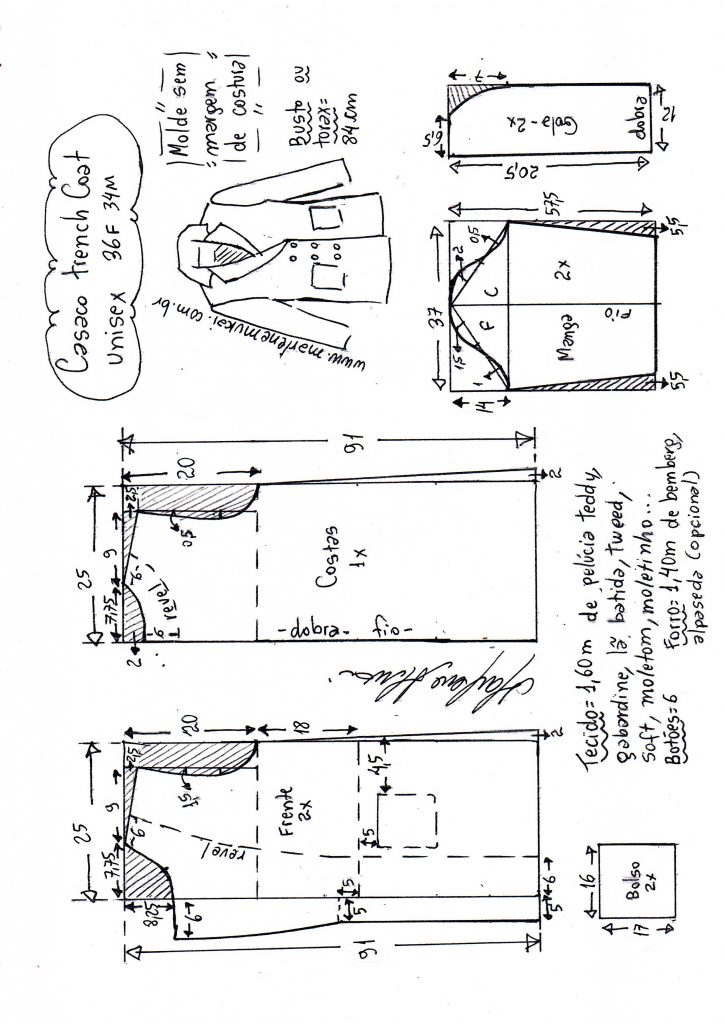 Casaco trench Coat
unisex 36F 34M
Molde sem
margem
de costura
Busto ou
torax=
84cm
www.marlenemukai.com.br
91
25
7,75
9
2,5
20
18
8,25
6
6
1,5
revel
Frente
2x
4,5
5
1,5
5
5
6
2
91
25
7,75
9
2,5
20
2
6
6
revel
0,5
Costas
1x
-dobra- fio-
2
37
14
1,5
2
0,5
1
F
C
Manga
2x
fio
57,5
5,5
5,5
6,5
7
Gola-2x
20,5
dobra
12
16
Bolso
2x
17
Tecido=1,60m de pelúcia teddy,
gabardine, lã batida, tweed,
soft, moletom, moletinho...
Botões=6 Forro=1,40m de bemberg,
alpaseda (opcional)